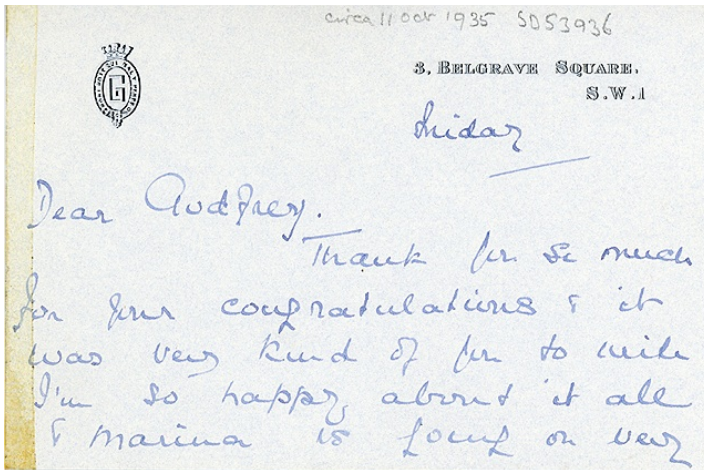 circa 11 oct 1935 SDS3936
3, BELGRAVE SQUARE.
S.W.1
G
Friday
Dear Godfrey.
Thank you so much
for your congratulations & it
was very kind of you to write
I'm so happy about it all
& Marina is going on very